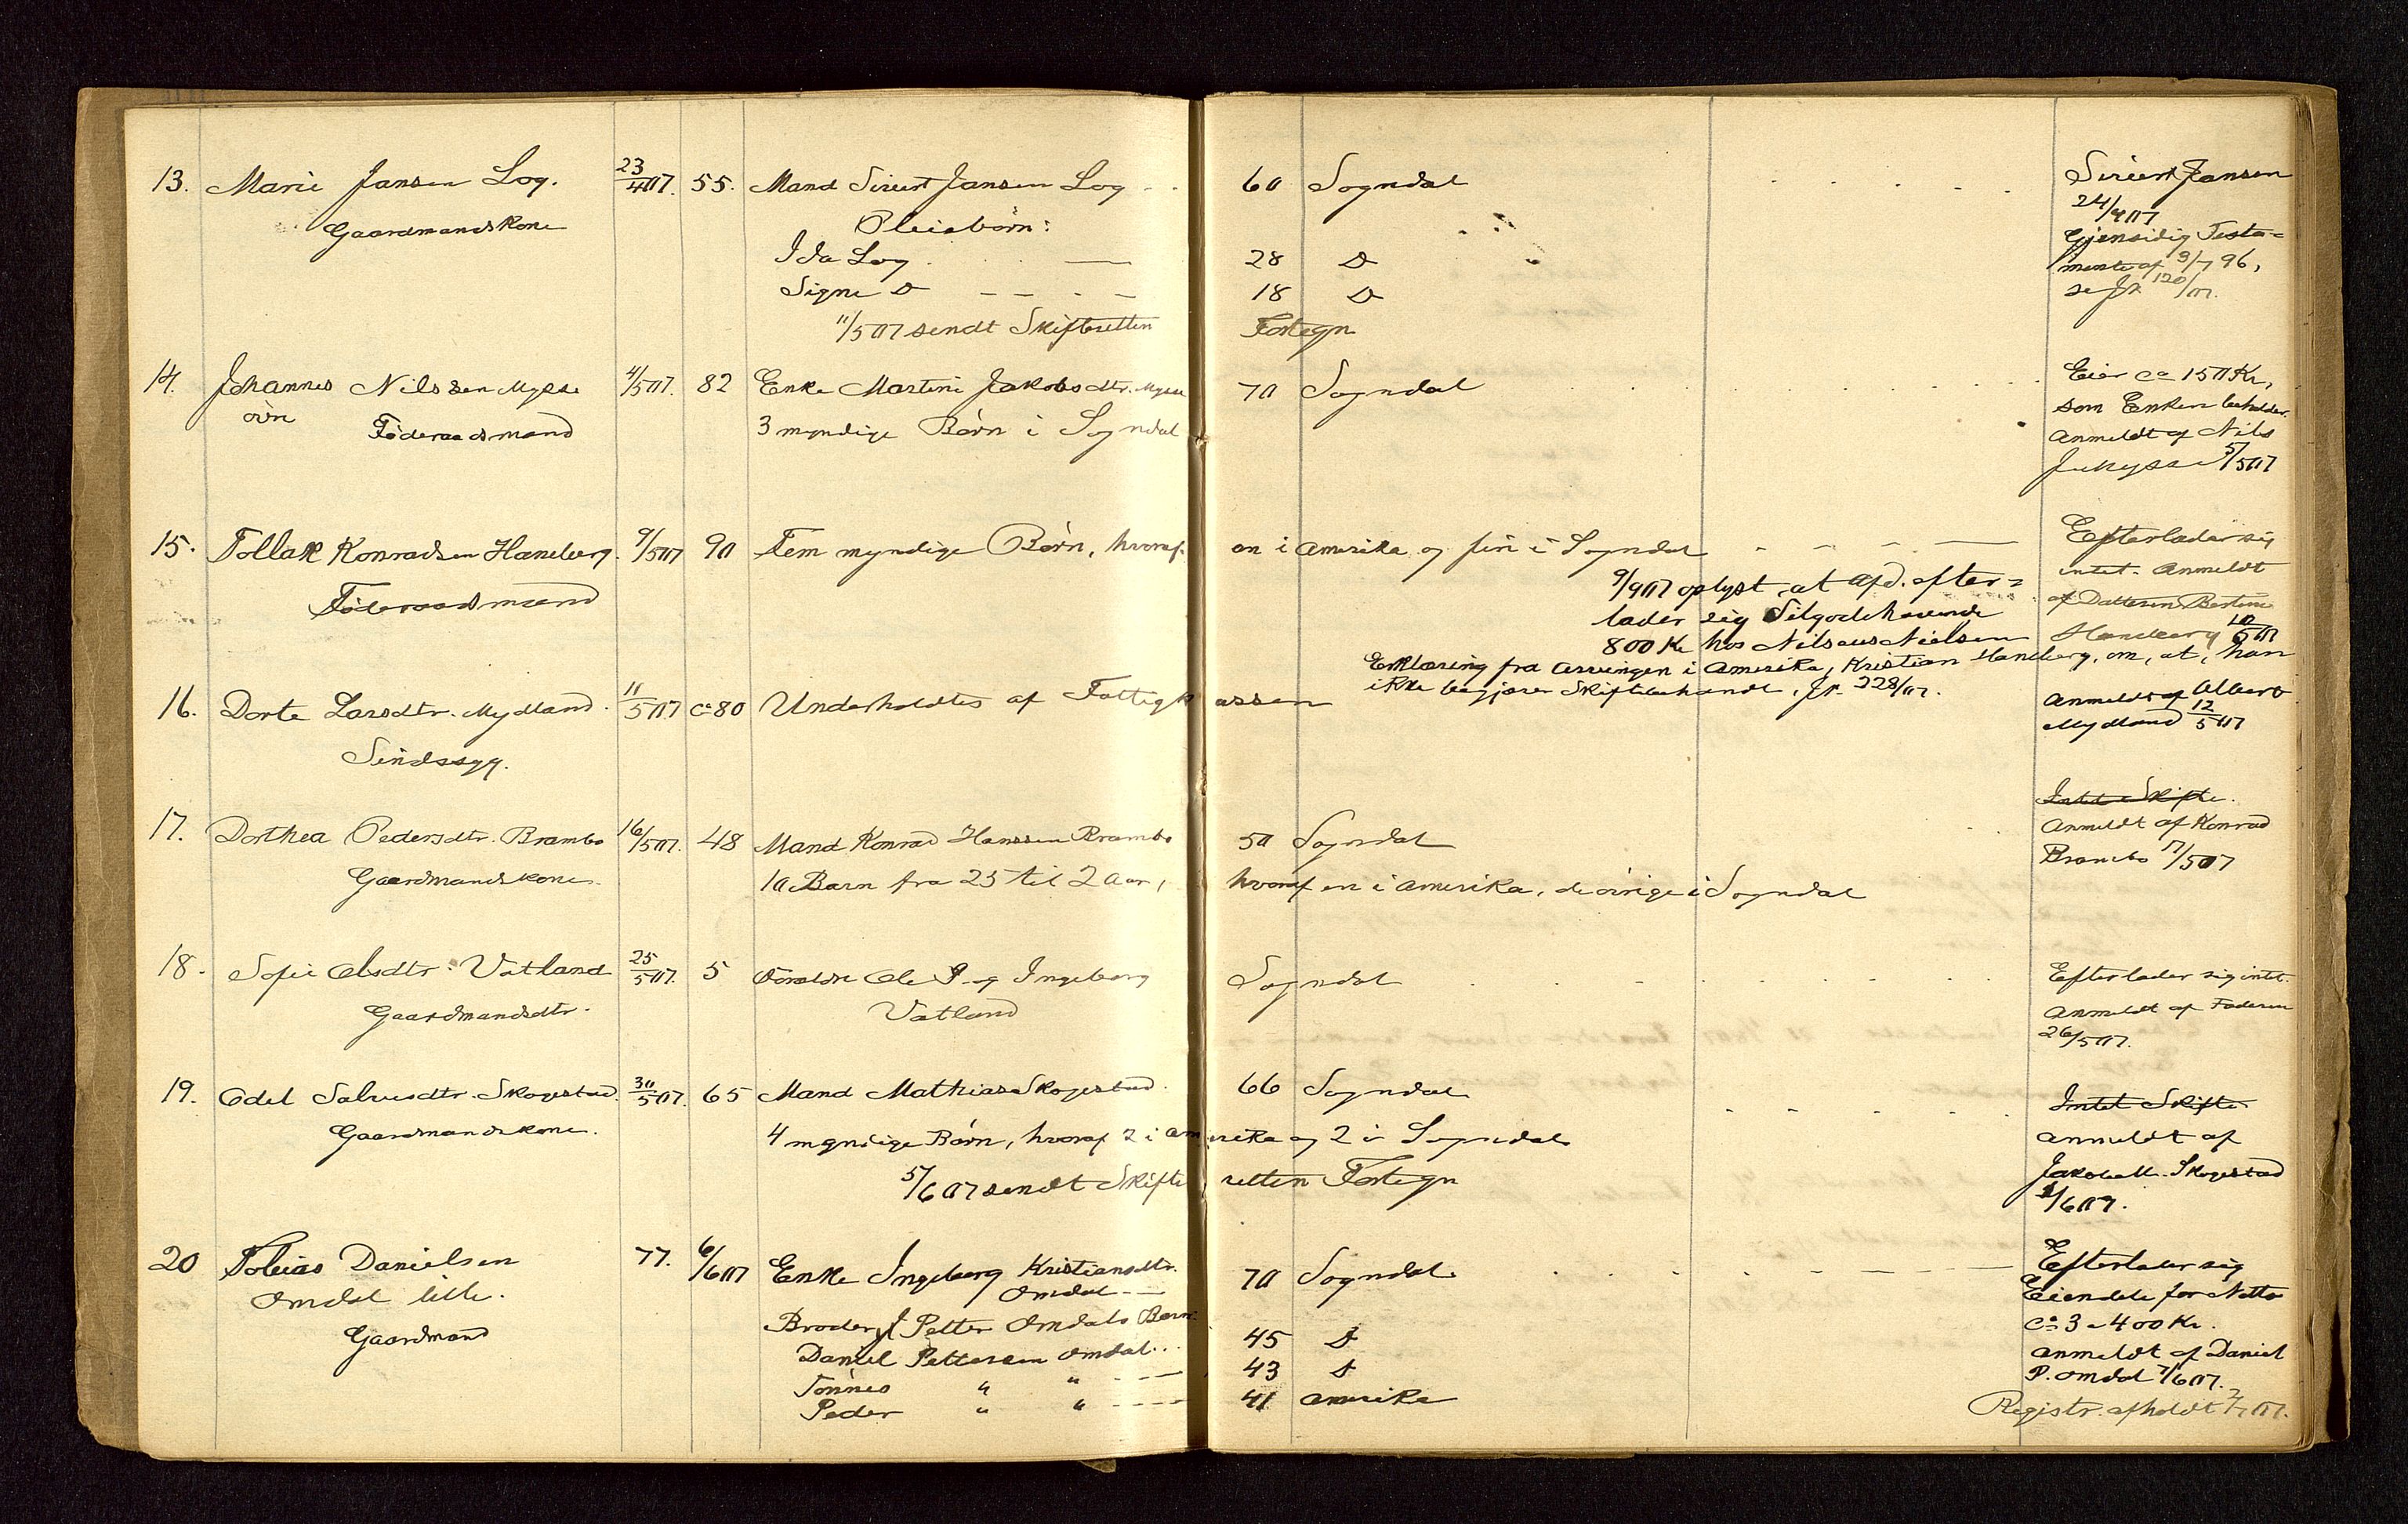 13. Marie Jansen Log. 23/4 07. 55. Mand Sivert Jansen Log - - 60 Sogndal - - - - Sivert Jansen
Gaardmandskone Pleiebørn: 24/4 07
Ida Log 28 D Gjensidig Testa=
Signe D 18 D mente af 9/7 96,
11/5 07 sendt Skifteretten Fortegn se Jr 120/07.
14. Johannes Nilssen Mysse 4/5 07. 82 Enke Martine Jakobsdtr. Mysse 70 Sogndal Eier ca 150 Kr,
øvn Föderaadsmand 3 myndige Børn i Sogndal som Enken beholder.
Anmeldt af Nils
J. Mysse 5/5 07
15. Tollak Konradsen Haneberg. 9/5 07 90 Fem myndige Børn, hvoraf en i Amerika og fire i Sogndal - - - Efterlader sig
Föderaadsmand 9/9 07 oplyst, at afd. efter= intet. Anmeldt
lader sig Tilgodehavende af Datteren Bertine
800 Kr hos Nilsaus Nielsen Haneberg 10/5 07
Erklæring fra arvingen i Amerika, Kristian Haneberg, om, at, han
ikke begjærer Skiftebehandl, Jr. 228/07.
16. Dorte Larsdtr. Mydland. 11/5 07 ca 80 Underholdtes af Fattigkassen Anmeldt af Albert
Sindssyg. Mydland 12/5 07
Intet Skifte.
17. Dorthea Pedersdtr. Brambo 16/5 07. 48 Mand Konrad Hanssen Brambo 50 Sogndal Anmeldt af Konrad
Gaardmandskone. 10 Barn fra 25 til 2 Aar, hvoraf en i Amerika, de øvrige i Sogndal Brambo 17/5 07
18. Sofie Olsdtr. Vatland 25/5 07. 5 Forældre Ole P. og Ingeborg Sogndal Efterlader sig intet.
Gaardmandsdtr. Vatland Anmeldt af Faderen
26/5 07.
19. Odel Salvesdtr. Skogestad. 30/5 07. 65 Mand Mathias Skogestad. 66 Sogndal Intet Skifte
Gaardmandskone. 4 myndige Børn, hvoraf 2 i Amerika og 2 i Sogndal anmeldt af
5/6 07 sendt Skifteretten Fortegn Jakob M. Skogestad
1/6 07.
20 Tobias Danielsen 77. 6/6 07 Enke Ingeborg Kristiansdtr. 70 Sogndal Efterlader sig
Omdal lille. Omdal - - Eiendele for Netto
Gaardmand Broder Petter Omdals Børn: ca 3 a 400 Kr.
Daniel Pettersen Omdal... 45 D anmeldt af Daniel
Tønnes " " - - - 43 D P. Omdal 7/6 07.
Peder " " - - - 41 Amerika Registr. afholdt 2/7 07.